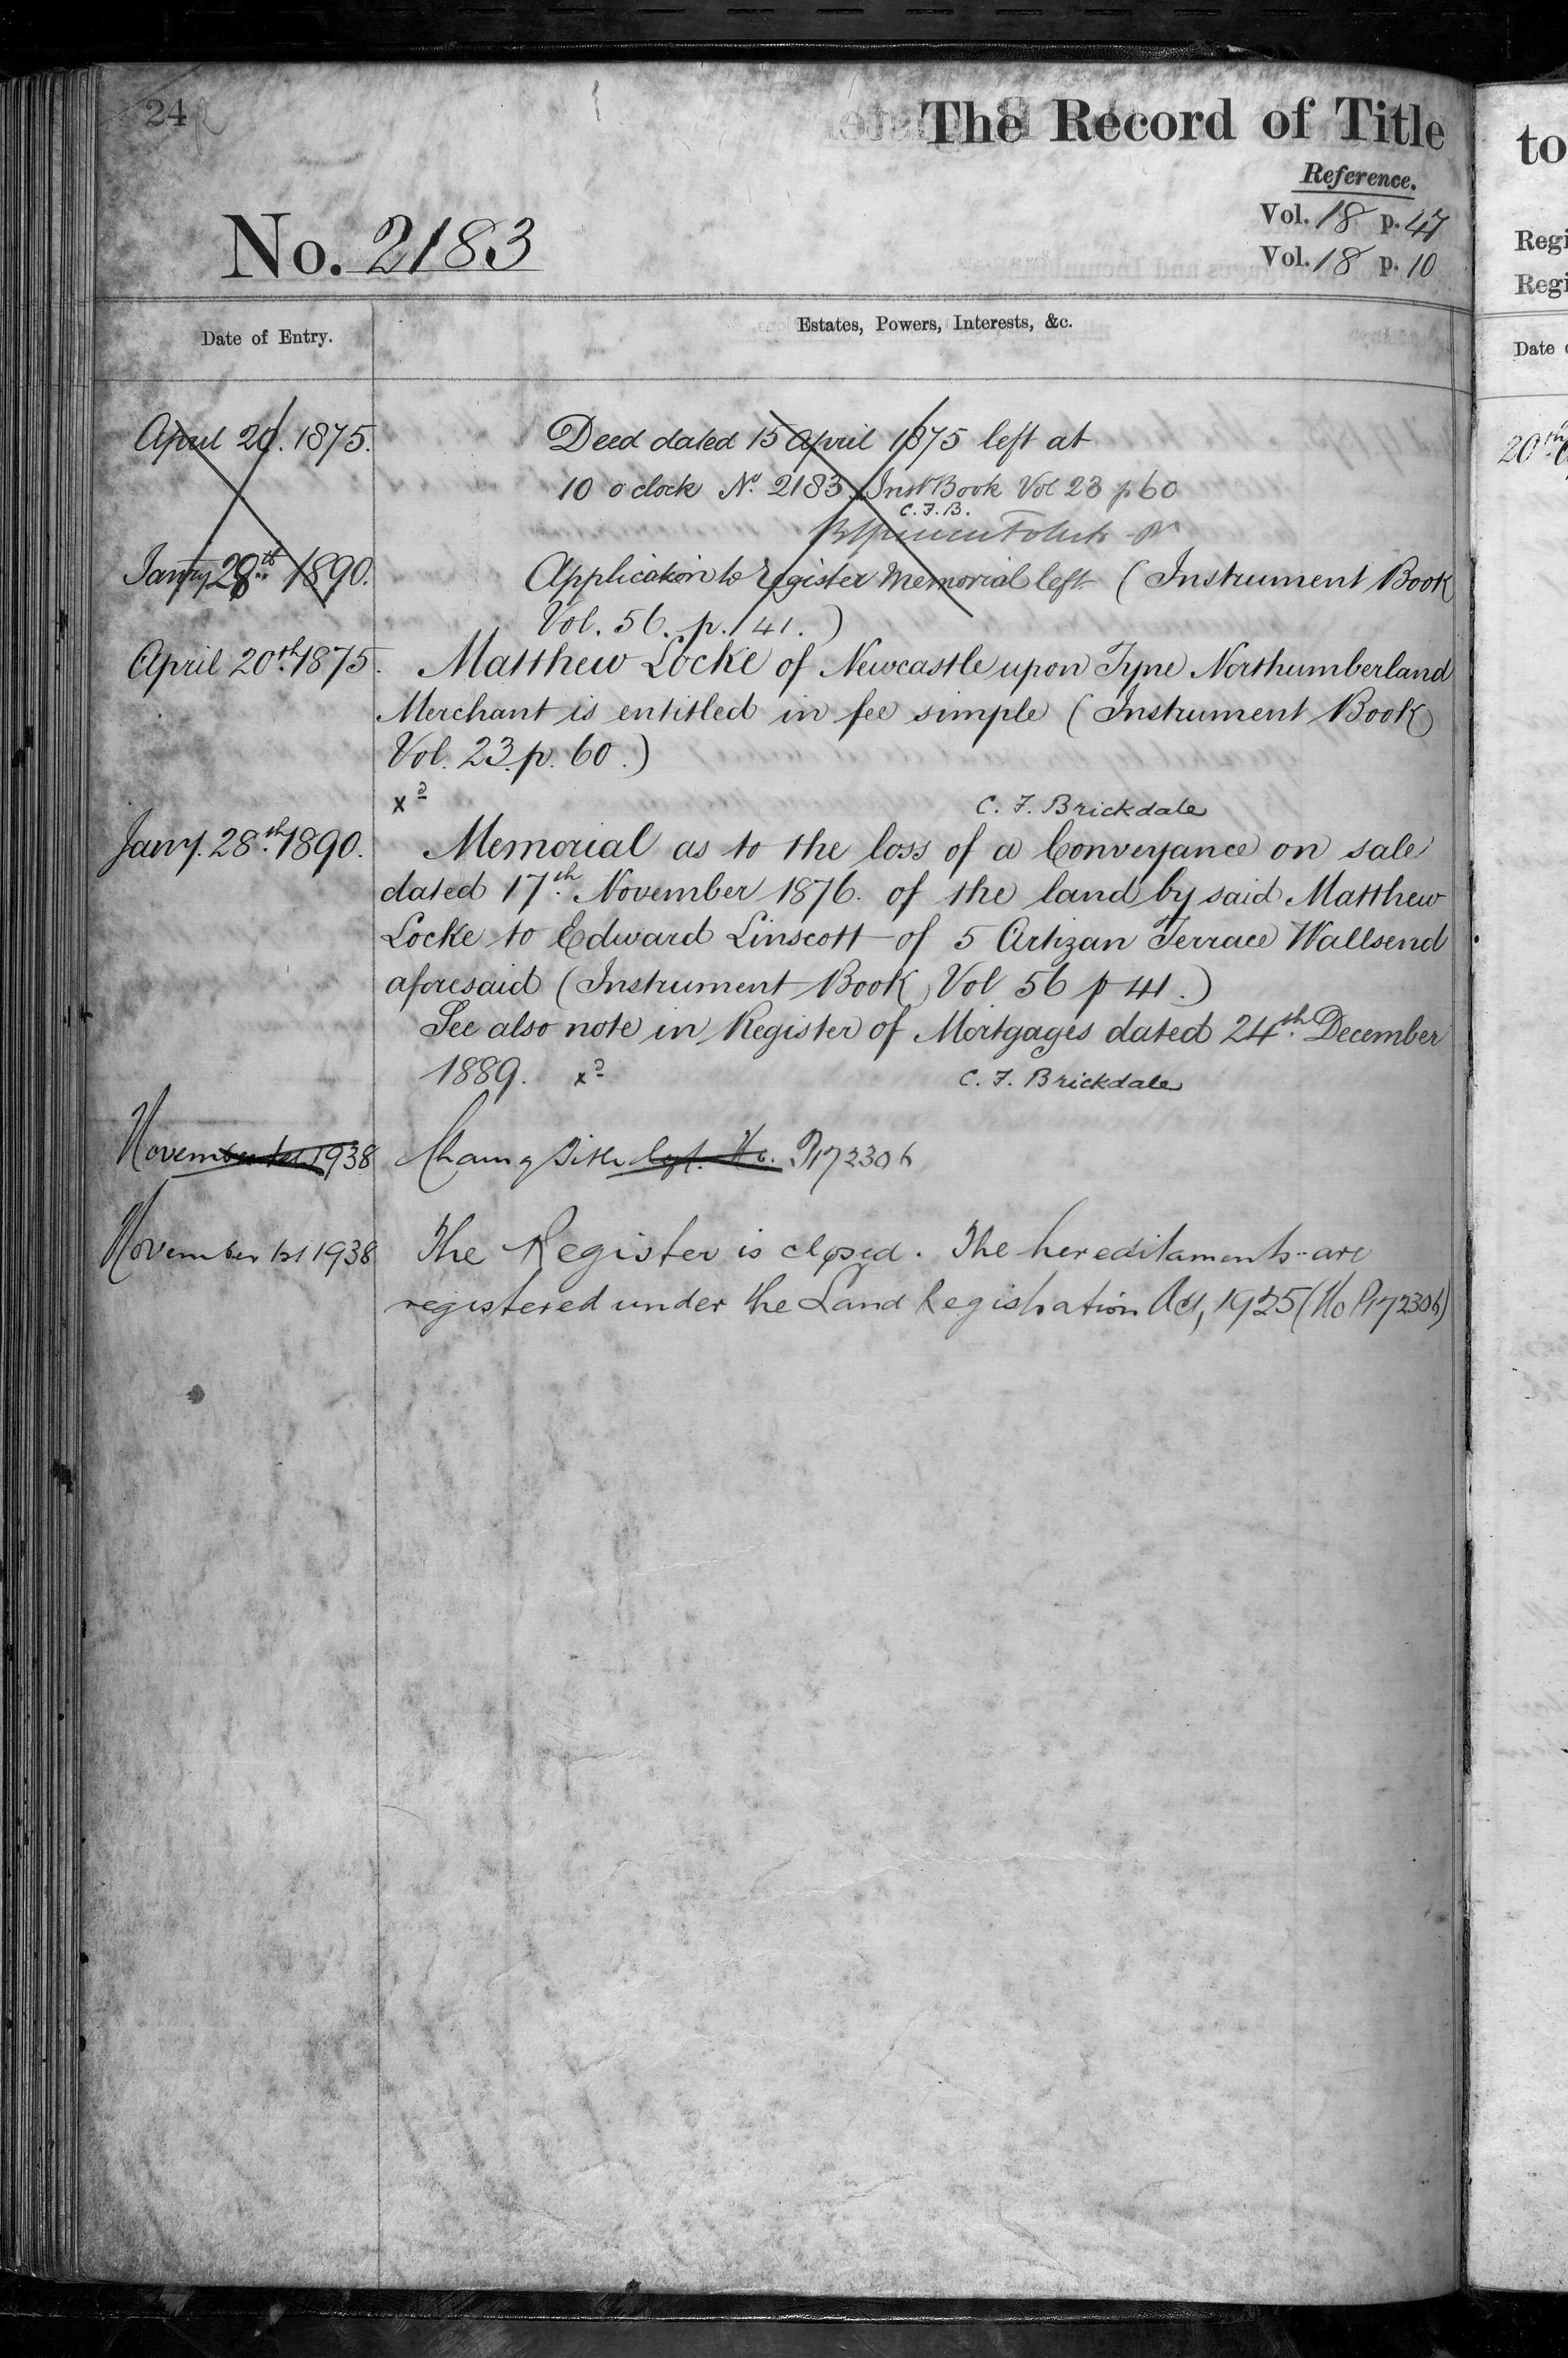 24
The Record of Title
Reference.
No. 2183
Vol. 18 p. 47
Vol. 18 p. 10
Date of Entry.
Estates, Powers, Interests, &c.
April 20. 1875. Deed dated 15 April 1875 left at
10 o clock No. 2183 Inst Book Vol 23 p 60
C. F. B.
Jany 28th 1890. Application to register Memorial left (Instrument Book
Vol. 56. p. 41.)
April 20th 1875. Matthew Locke of Newcastle upon Tyne Northumberland
Merchant is entitled in fee simple (Instrument Book
Vol. 23. p. 60.)
C. F. Brickdale
Jany. 28th 1890. Memorial as to the loss of a Conveyance on sale
dated 17th November 1876. of the land by said Matthew
Locke to Edward Linscott of 5 Artizan Terrace Wallsend
aforesaid (Instrument Book Vol 56 p 41.)
See also note in Register of Mortgages dated 24th December
1889.
C. F. Brickdale
November 1st 1938 P172306
November 1st 1938 The Register is closed. The hereditaments are
registered under the Land Registration Act, 1925 (No P172306)
to
Regi
Regi
Date
20th